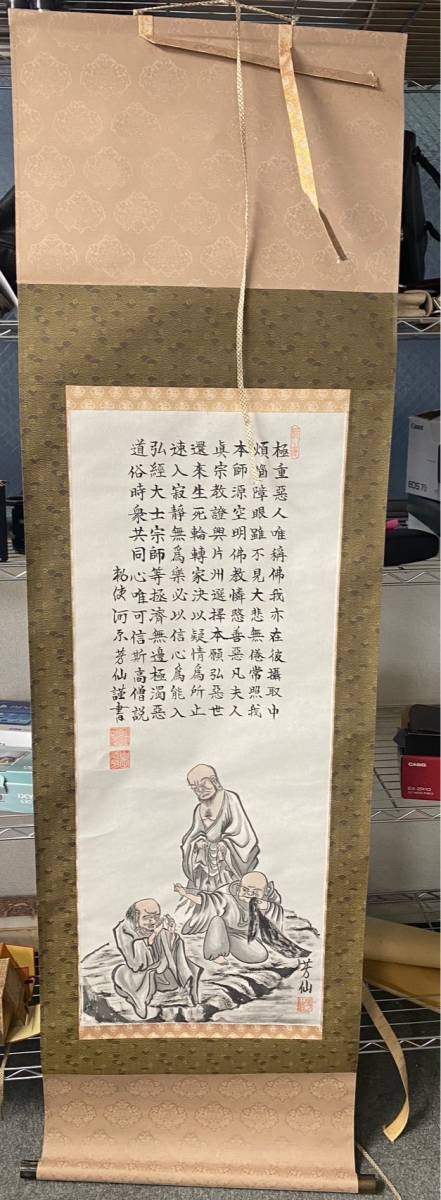 極重惡人唯稱佛我亦在彼攝取中
煩惱障眼雖不見大悲無倦常照我
本師源空明佛教憐愍善惡凡夫人
眞宗教證興片州選擇本願弘惡世
還來生死輪轉家決以疑情爲所止
速入寂靜無爲樂必以信心爲能入
弘經大士宗師等拯濟無邊極濁惡
道俗時衆共同心唯可信斯高僧説
勅使河原芳仙謹書
芳仙
Canon
CASIO